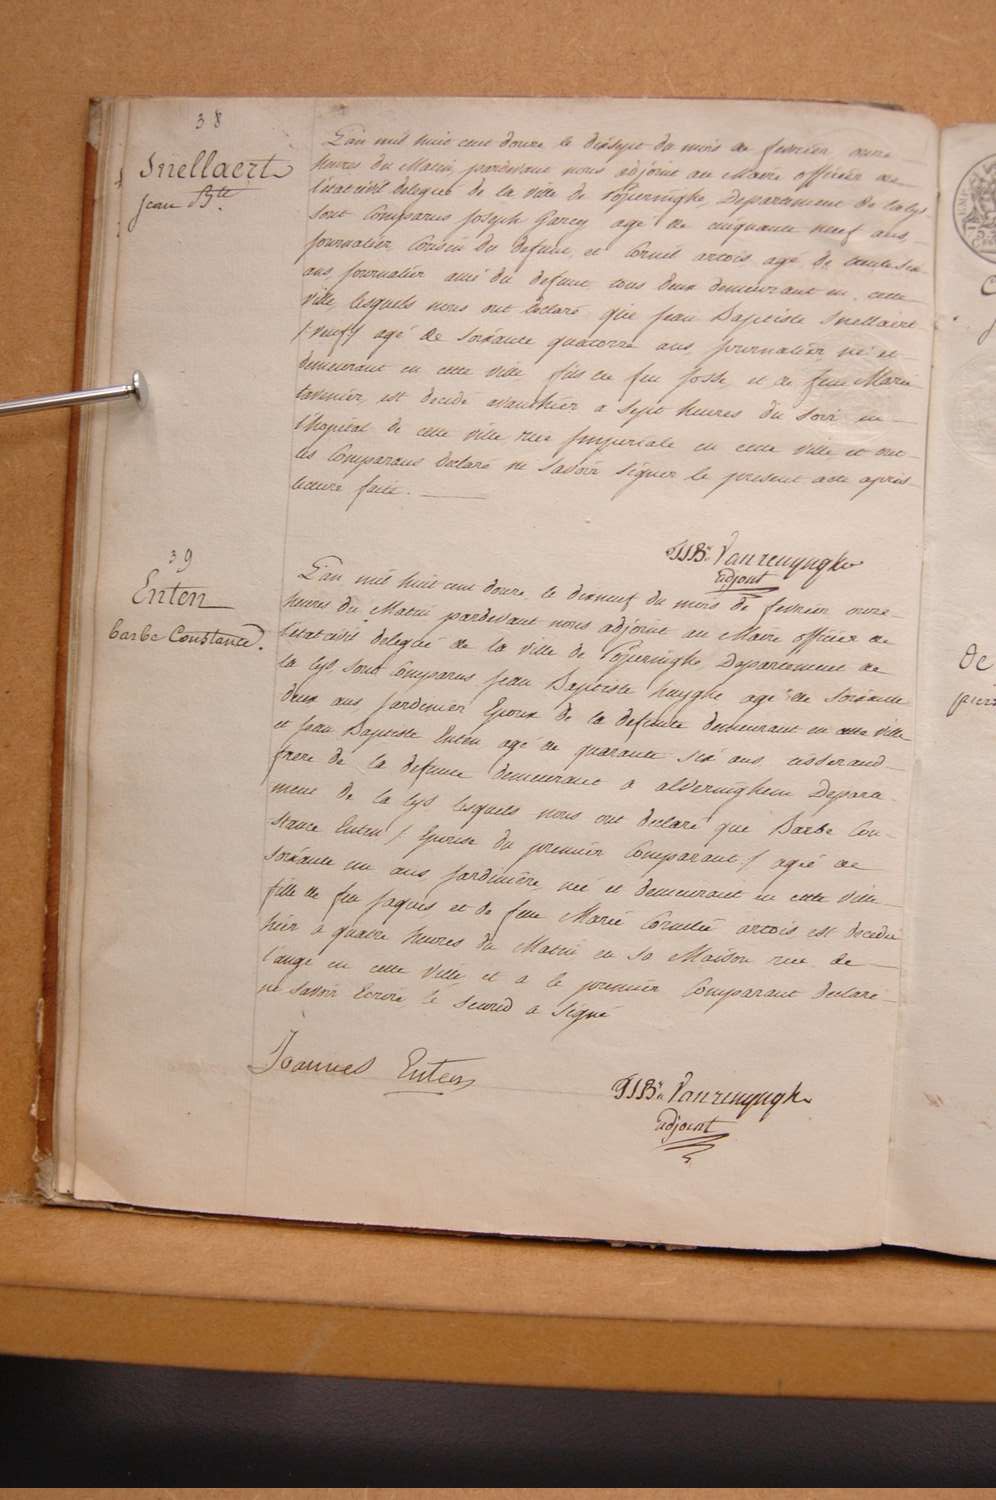 38
Snellaert
Jean Bte.
L'an mil huit cent douze le dixsept du mois de fevrier onze
heures du Matin, pardevant nous adjoint au Maire officier de
l'état civil delegué de la ville de Poperinghe, Departement de la lys
sont Comparus Joseph Garcy agé de cinquante neuf ans,
journalier Cousin du defunt, et Cornil artois agé de trente six
ans, journalier ami du defunt, tous deux demeurant en cette
ville, lesquels nous ont declaré que jean Baptiste Snellaert
/veuf/ agé de soixante quatorze ans, journalier, né et
demeurant en cette ville fils de feu Josse, et de feue Marie
tavernier, est decedé avanthier a sept heures du soir en
l'hopital de cette ville, rue Imperiale en cette ville et ont
les Comparans declaré ne savoir signer le present acte après
lecture faite.
Vanrenynghe
adjoint
39
Enten
barbe Constance.
L'an mil huit cent douze, le dixneuf du mois de fevrier onze
heures du Matin pardevant nous adjoint au Maire officier de
l'état civil delegué de la ville de Poperinghe, Departement de
la lys, sont Comparus jean Baptiste huyghe agé de soixante
deux ans jardinier Epoux de la defunte demeurant en cette ville
et jean Baptiste Enten agé de quarante six ans tisserand
frere de la defunte demeurant a alveringhem Departe
ment de la lys lesquels nous ont declaré que Barbe Con-
stance Enten / Epouse du premier Comparant / agée de
soixante un ans jardinière, née et demeurant en cette ville
fille de feu jaques et de feue Marie Cornelie artois est decedée
hier a quatre heures du Matin en sa Maison rue de
l'ange en cette ville et a le premier Comparant declaré
ne savoir Ecrire le second a signé
Joannes Enten
Vanrenynghe
adjoint
de